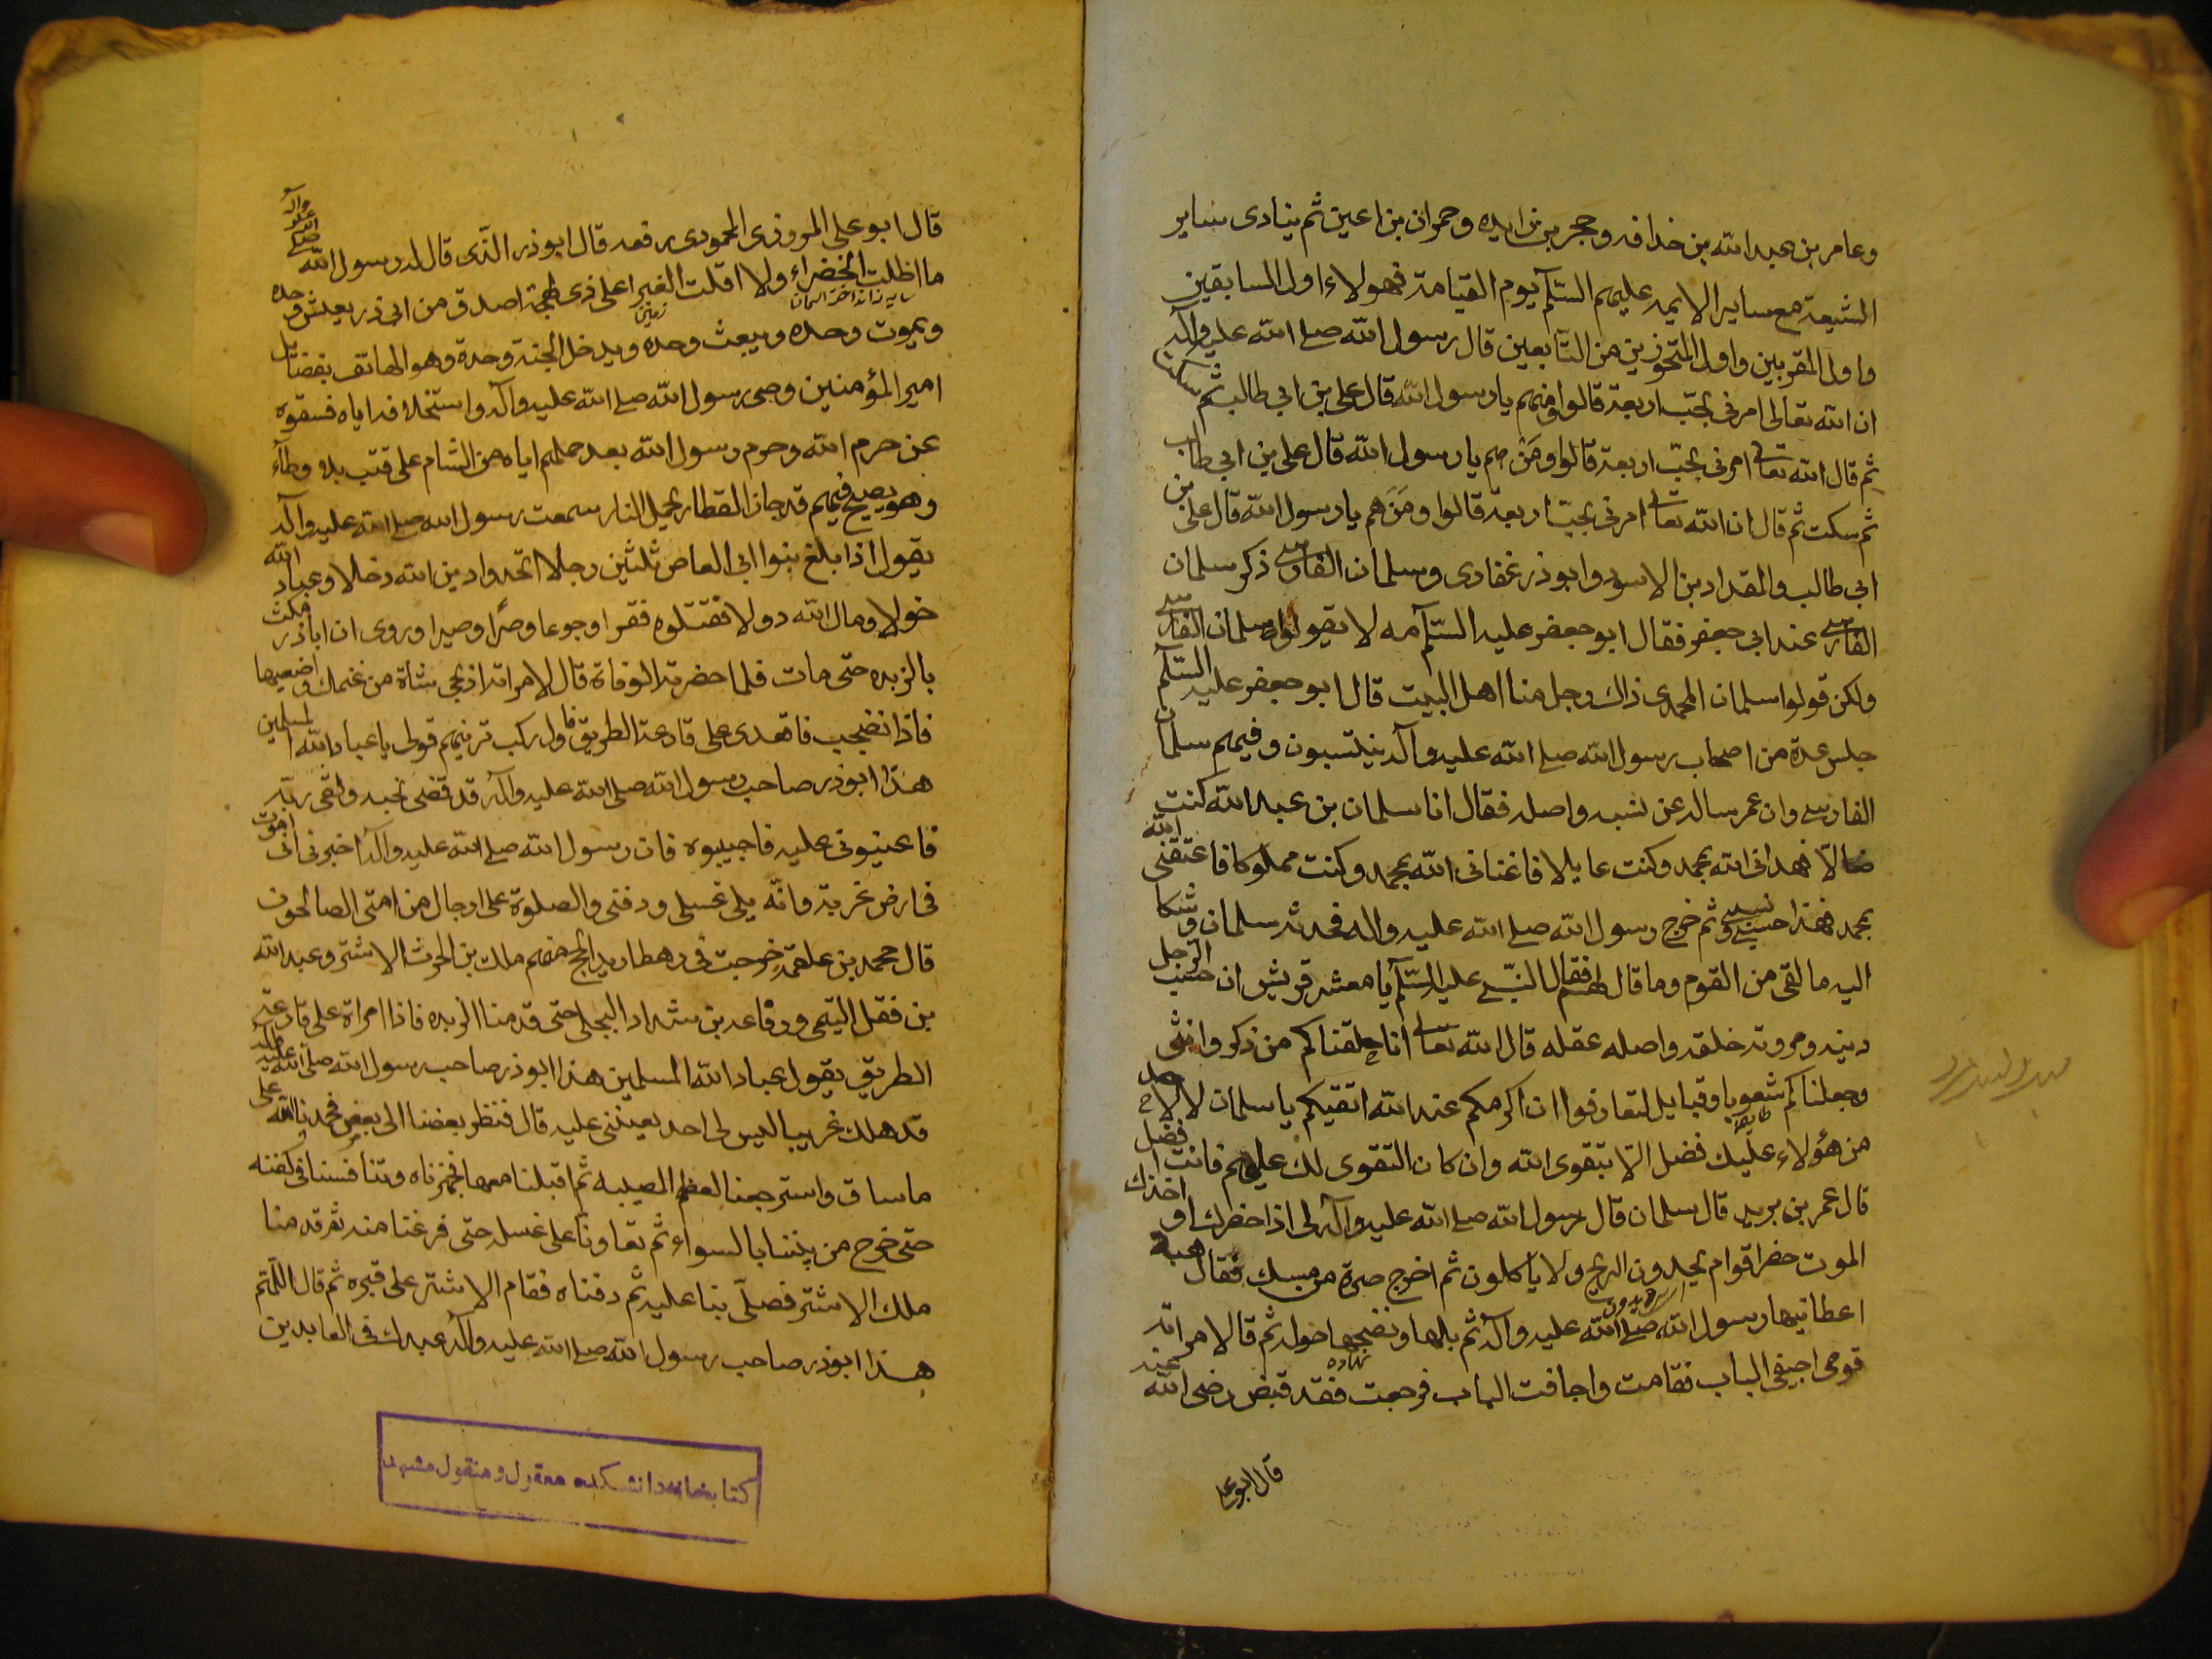 وعامر بن عبد الله بن خدافه وحجر بن زايده وحمران بن اعين ثم ينادى ساير
الشيعة مع ساير الايمه عليهم السلم يوم القيامة فهولاء اول السابقين
واول المقربين واول المتحوزين من التابعين قال رسول الله صلى الله عليه وآله
ان الله تعالى امرنى بحبّ اربعة قالوا ومنهم يا رسول الله قال على بن ابى طالب ثم سكت
ثم قال الله تعالى امرنى بحبّ اربعة قالوا ومَن هم يا رسول الله قال على بن ابى طالب
ثم سكت ثم قال ان الله تعالى امرنى بحبّ اربعة قالوا ومَن هم يا رسول الله قال على بن
ابى طالب والمقداد بن الاسود وابو ذر غفارى وسلمان الفارسى ذكر سلمان
الفارسى عند ابى جعفر فقال ابو جعفر عليه السلم مه لا تقولوا سلمان الفارسى
ولكن قولوا سلمان المحمدى ذاك رجل منا اهل البيت قال ابو جعفر عليه السلم
جلس عدة من اصحاب رسول الله صلى الله عليه وآله ينتسبون وفيهم سلمان
الفارسى وان عمر ساله عن نسبه واصله فقال انا سلمان بن عبد الله كنت
ضالّا فهدانى الله بمحمد وكنت عايلا فاغنانى الله بمحمد وكنت مملوكا فاعتقنى الله
بمحمد فهذا حسبى ونسبى ثم خرج رسول الله صلى الله عليه واله فحدثه سلمان وشكا
اليه ما لقى من القوم وما قال لهم فقال النبى عليه السلم يا معشر قريش ان حسب الرجل
دينه ومروته خلقه واصله عقله قال الله تعالى انا خلقناكم من ذكر وانثى
وجعلناكم شعوبا وقبايل لتعارفوا ان اكرمكم عند الله اتقيكم يا سلمان لا لاحد
من هؤلاء عليك فضل الا بتقوى الله وان كان التقوى لك عليهم فانت افضل
قال عمر بن يزيد قال سلمان قال رسول الله صلى الله عليه وآله لى اذا حضرك او اخذك
الموت حضر اقوام يجدون الريح ولا ياكلون ثم اخرج صرة من مسك فقال هبة
اعطانيها رسول الله صلى الله عليه وآله ثم بلها ونضجها حوله ثم قال لامراته
قومى اجيفى الباب فقامت واجافت الباب فرجعت فقد قبض رضى الله عنه
قال ابو على
قال ابو على المروزى المحمودى رفعه قال ابو ذر الذى قال له رسول الله صلى الله عليه وآله
ما اظلت الخضراء ولا اقلت الغبرا على ذى لهجة اصدق من ابى ذر يعيش وحده
ويموت وحده ويبعث وحده ويدخل الجنة وحده وهو الهاتف بفضايل
امير المؤمنين وصى رسول الله صلى الله عليه وآله واستخلافه اياه فنفوه
عن حرم الله وحرم رسول الله بعد حملهم اياه من الشام على قتب بلا وطآء
وهو يصيح فيهم قد جاز القطار يحمل النار سمعت رسول الله صلى الله عليه وآله
يقول اذا بلغ بنوا ابى العاص ثلثين رجلا اتخذوا دين الله دخلا وعباد الله
خولا ومال الله دولا فقتلوه فقرا وجوعا وضرًا وصبرا وروى ان اباذر مكث
بالربذه حتى مات فلما حضرته الوفاة قال لامراته اذبحى شاة من غنمك واصنعيها
فاذا نضجت فاقعدى على قارعة الطريق فاول ركب ترينهم قولى يا عباد الله المسلمين
هذا ابو ذر صاحب رسول الله صلى الله عليه وآله قد قضى نحبه ولقى ربّه
فاعينونى عليه فاجيبوه فان رسول الله صلى الله عليه وآله اخبرنى انى اموت
فى ارض غربة وانّه يلى غسلى ودفنى والصلوة على رجال من امتى الصالحون
قال محمد بن علقمه خرجت فى رهط اريد الحج منهم ملك بن الحرث الاشتر وعبد الله
بن فقل التيمى ورفاعه بن شداد البجلى حتى قدمنا الربذه فاذا امراة على قارعة
الطريق يقول عباد الله المسلمين هذا ابو ذر صاحب رسول الله صلى الله عليه وآله
قد هلك غريبا ليس لى احد يعيننى عليه قال فنظر بعضنا الى بعض فحمدنا الله على
ما ساق واسترجعنا لعظم المصيبه ثم اقبلنا معها فجهزناه وتنافسنا فى كفنه
حتى خرج من بيننا بالسواء ثم تعاونّا على غسله حتى فرغنا منه ثم قدمنا
ملك الاشتر فصلى بنا عليه ثم دفناه فقام الاشتر على قبره ثم قال اللّهم
هذا ابو ذر صاحب رسول الله صلى الله عليه وآله عبدك فى العابدين
كتابخانه دانشكده معقول و منقول مشهد